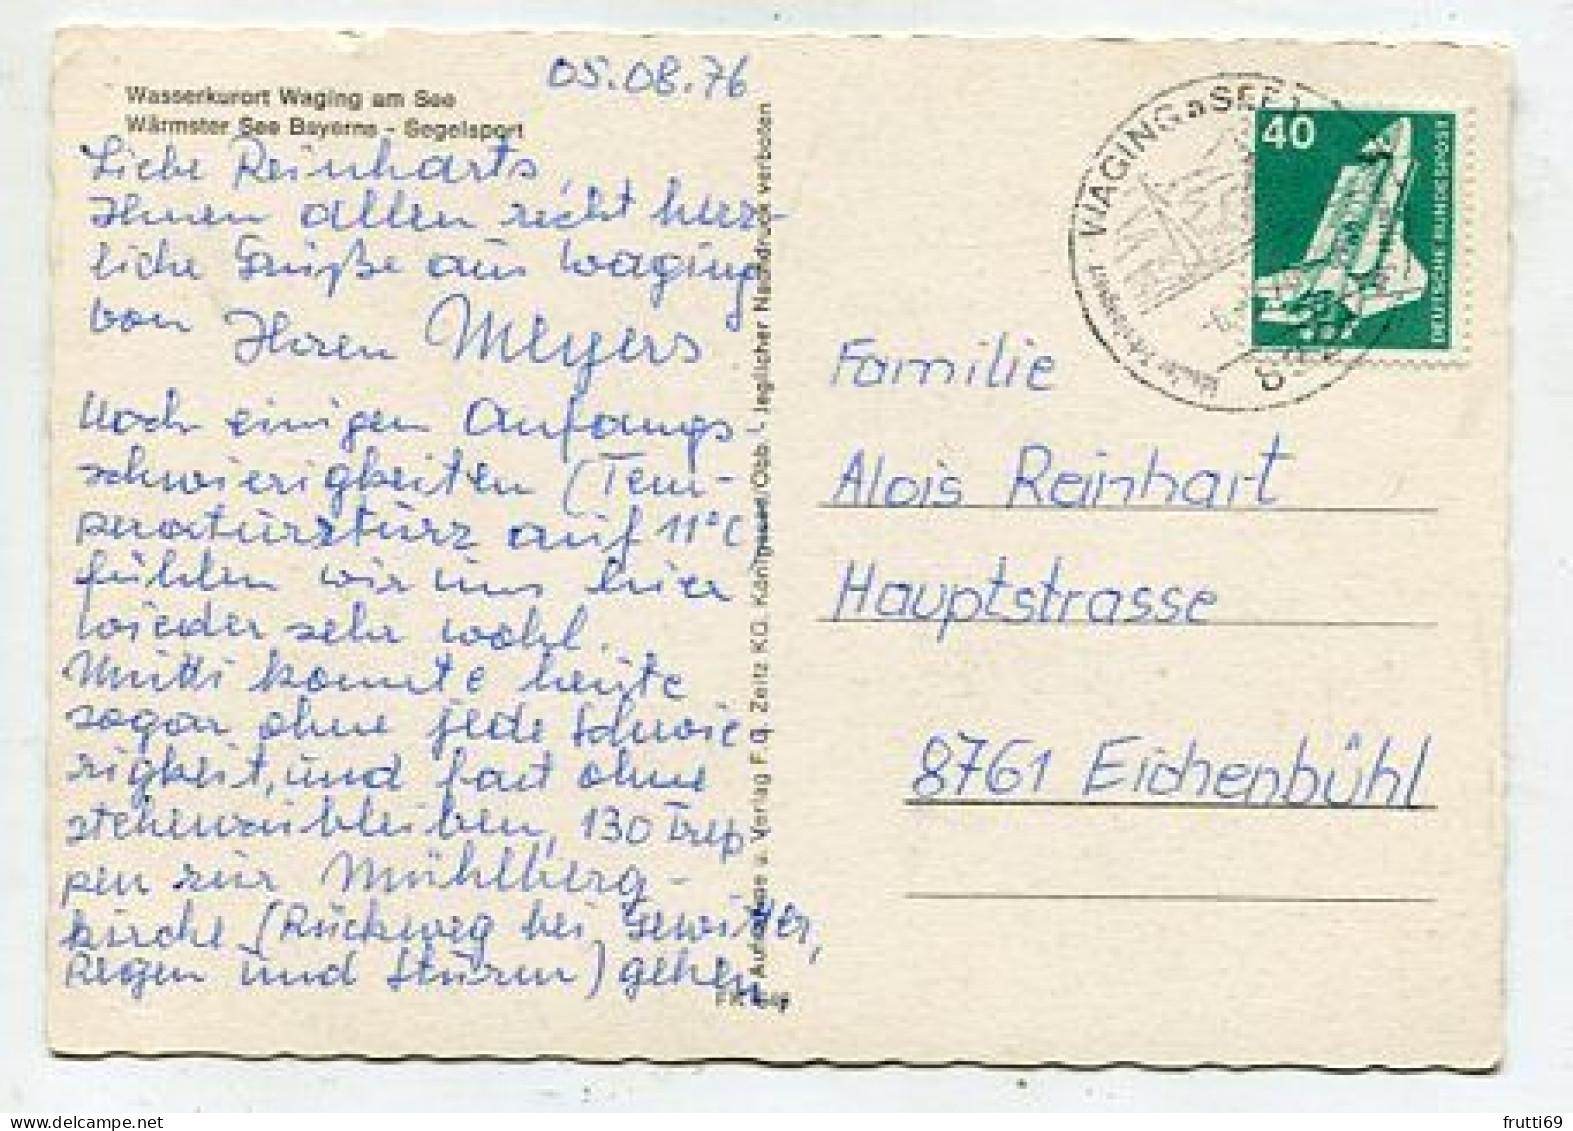 05.08.76
Wasserkurort Waging am See
Wärmster See Bayerns - Segelsport
Liebe Reinharts,
Ihnen allen recht herz-
liche Grüße aus Waging
von Ihren Meyers
Nach einigen Anfangs-
schwierigkeiten (Tem-
peratursturz auf 11°C
fühlen wir uns hier
wieder sehr wohl.
Mutti konnte heute
sogar ohne jede Schwie
rigkeit, und fast ohne
stehenzubleiben, 130 Trep
pen zur Mühlberg-
kirche (Rückweg bei Gewitter,
Regen und Sturm) gehen
Verlag F. G. Zeitz KG. Königssee/Obb. - Jeglicher Nachdruck verboten
WAGING a SEE
40
DEUTSCHE BUNDESPOST
Familie
Alois Reinhart
Hauptstrasse
8761 Eichenbühl
frutti69